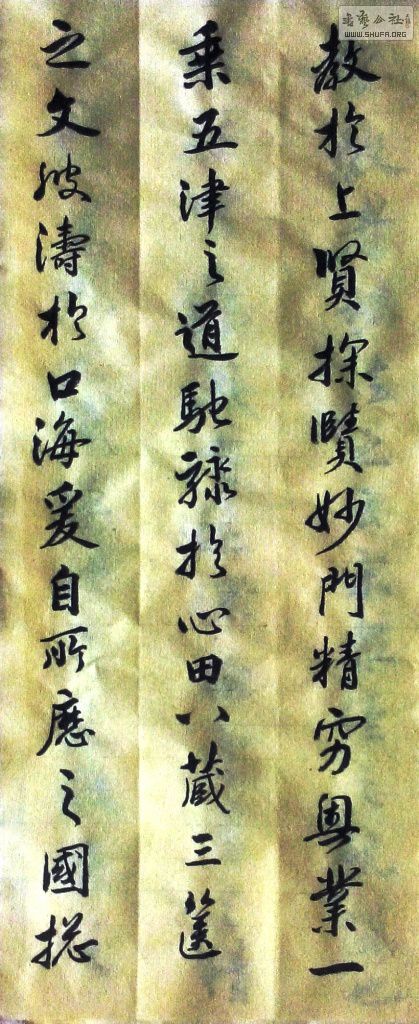 教於上賢探賾妙門精窮奧業一
乘五津之道馳驟於心田八藏三篋
之文波濤於口海爰自所歷之國捴
書藝公社
WWW.SHUFA.ORG